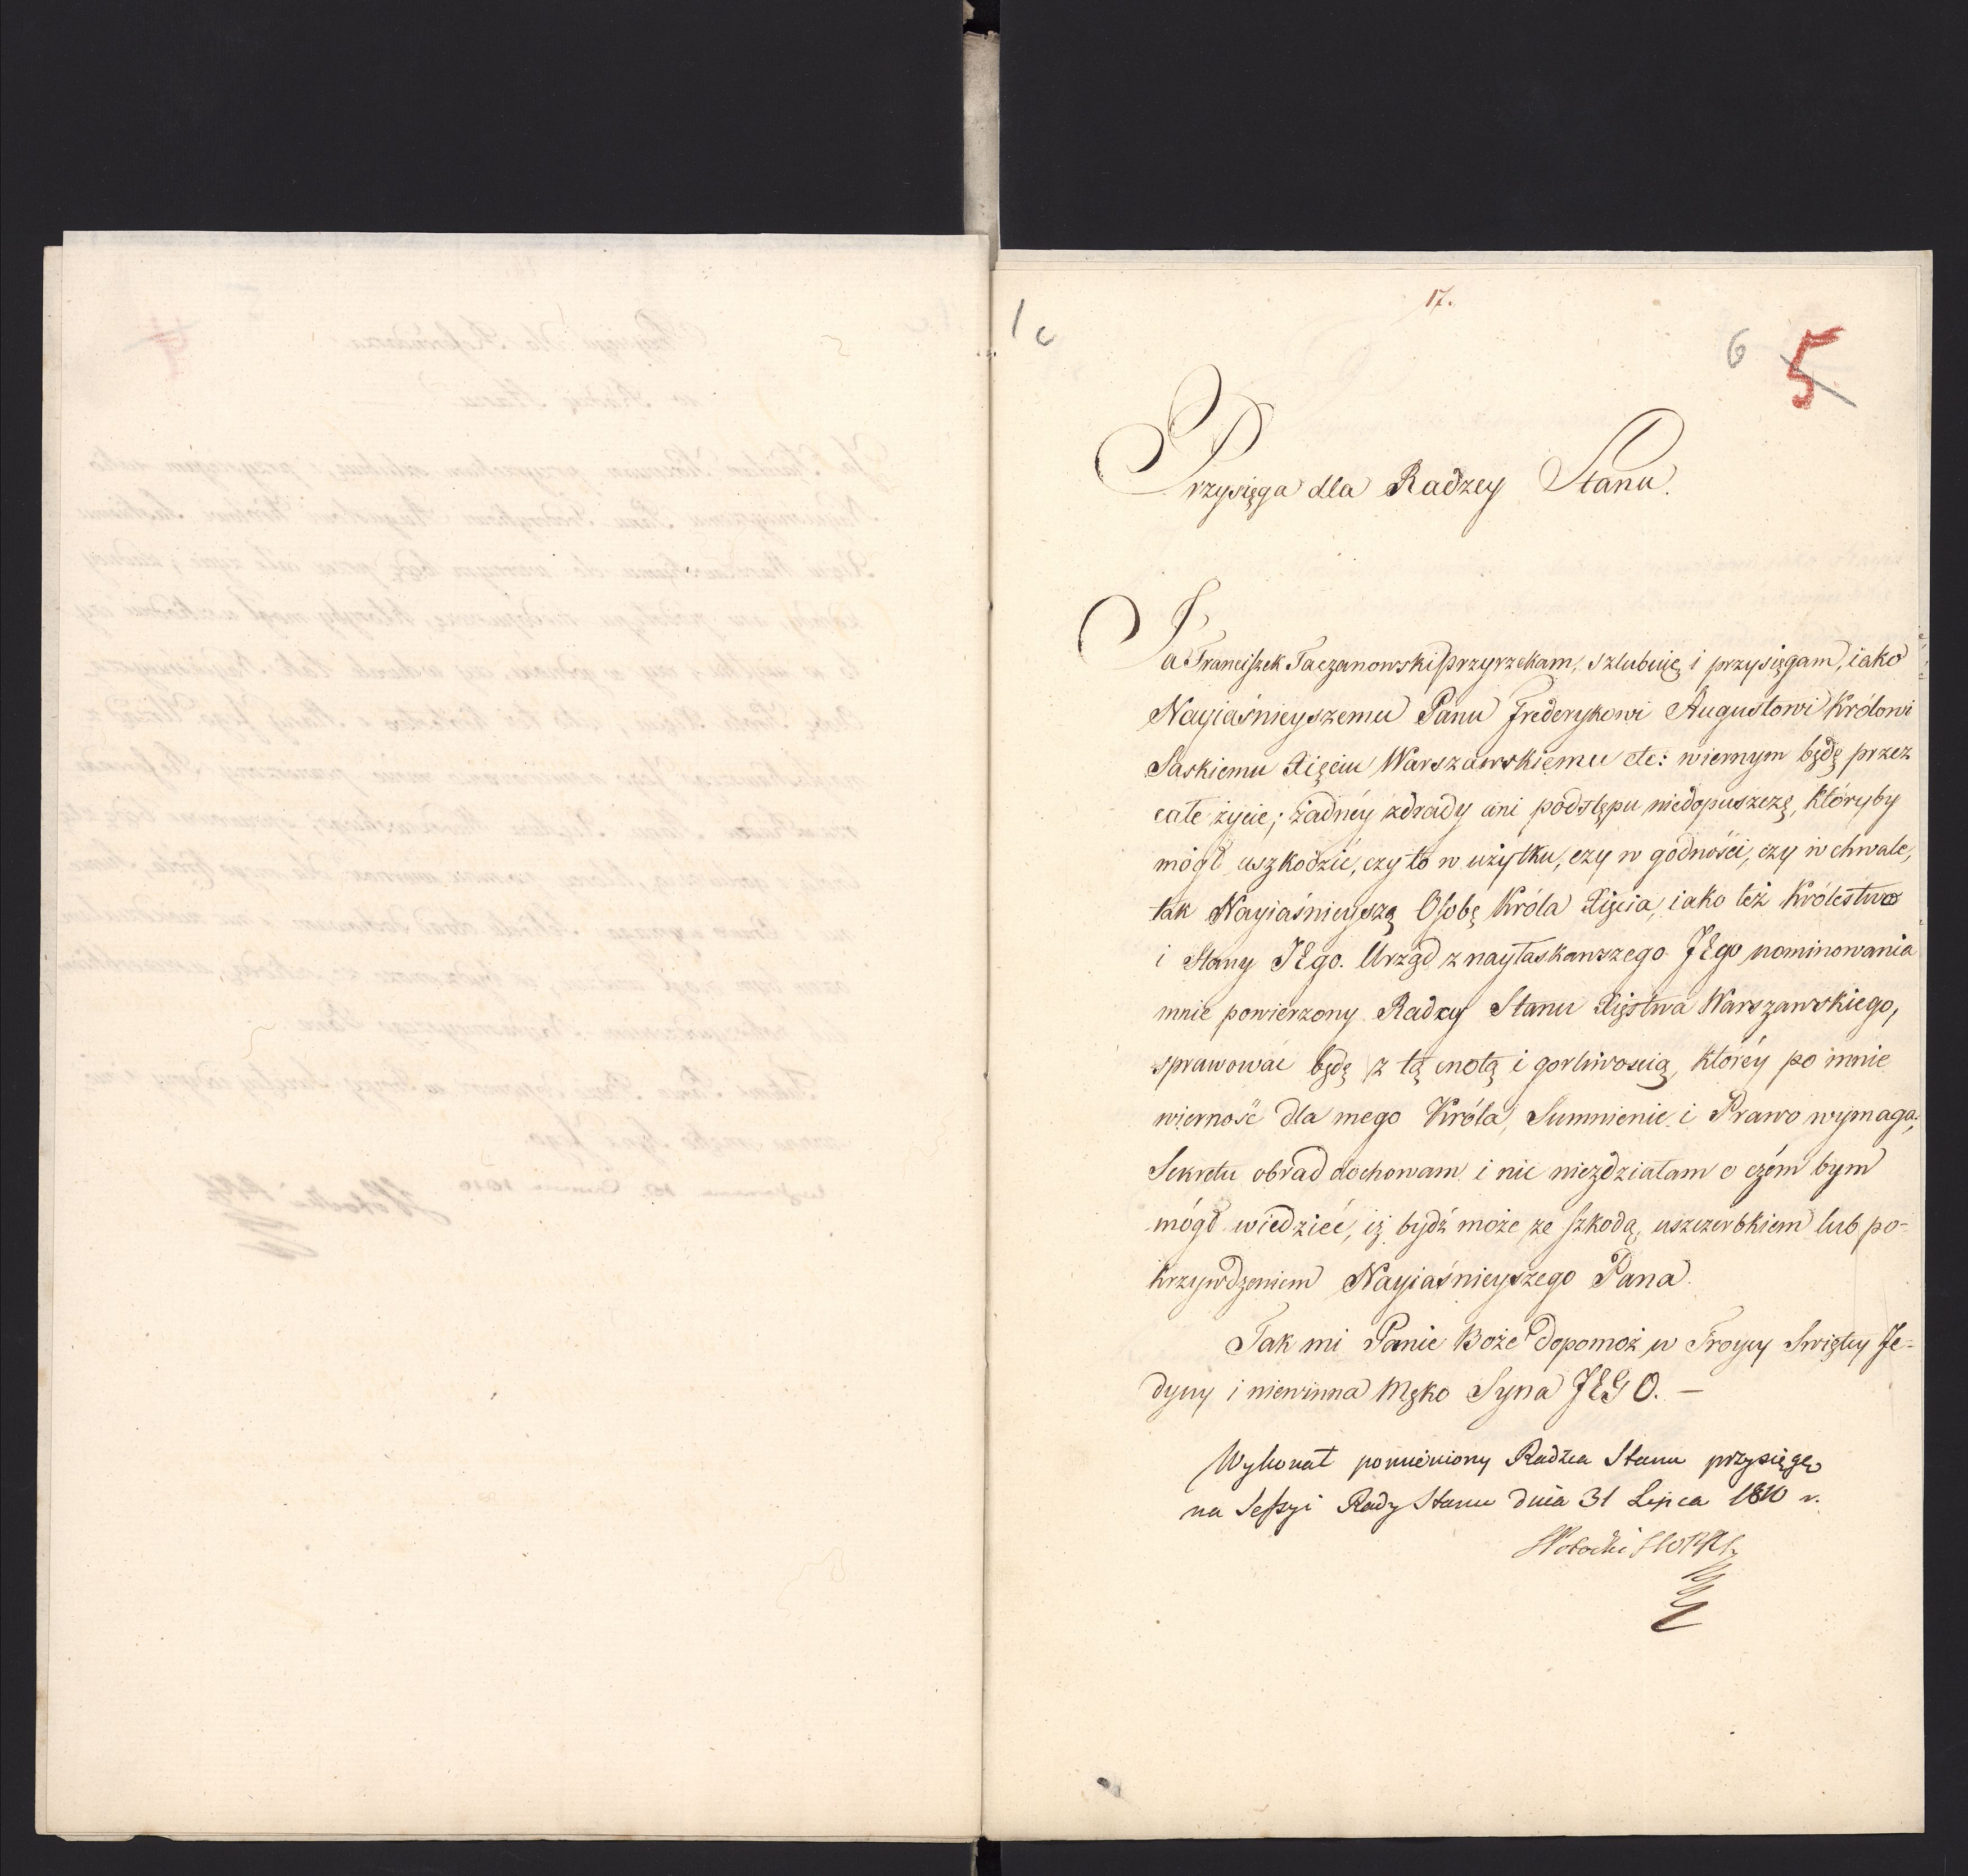 17.
6 5
Przysięga dla Radzcy Stanu.
Ja Franciszek Taczanowski przyrzekam, szlubuię i przysięgam, iako
Nayiaśnieyszemu Panu Frederykowi Augustowi Królowi
Saskiemu Xięciu Warszawskiemu etc: wiernym będę przez
całe życie; żadnéy zdrady ani podstępu niedopuszczę, któryby
mógł uszkodzić, czy to w użytku, czy w godności, czy w chwale,
tak Nayiaśnieyszą Osobę Króla Xięcia, iako też Królestwo
i Stany JEgo. Urząd z nayłaskawszego JEgo nominowania
mnie powierzony Radzcy Stanu Xięstwa Warszawskiego,
sprawować będę z tą cnotą i gorliwością, któréy po mnie
wierność dla mego Króla, Sumnienie i Prawo wymaga;
Sekretu obrad dochowam i nic niezdziałam o czém bym
mógł wiedzieć, iż bydź może ze szkodą, uszczerbkiem lub po-
krzywdzeniem Nayiaśnieyszego Pana.
Tak mi Panie Boże dopomoż w Troycy Swiętey Je-
dyny i niewinna Męko Syna JEGO. —
Wykonał pomieniony Radzca Stanu przysięgę
na Sessyi Rady Stanu dnia 31 Lipca 1810 r.